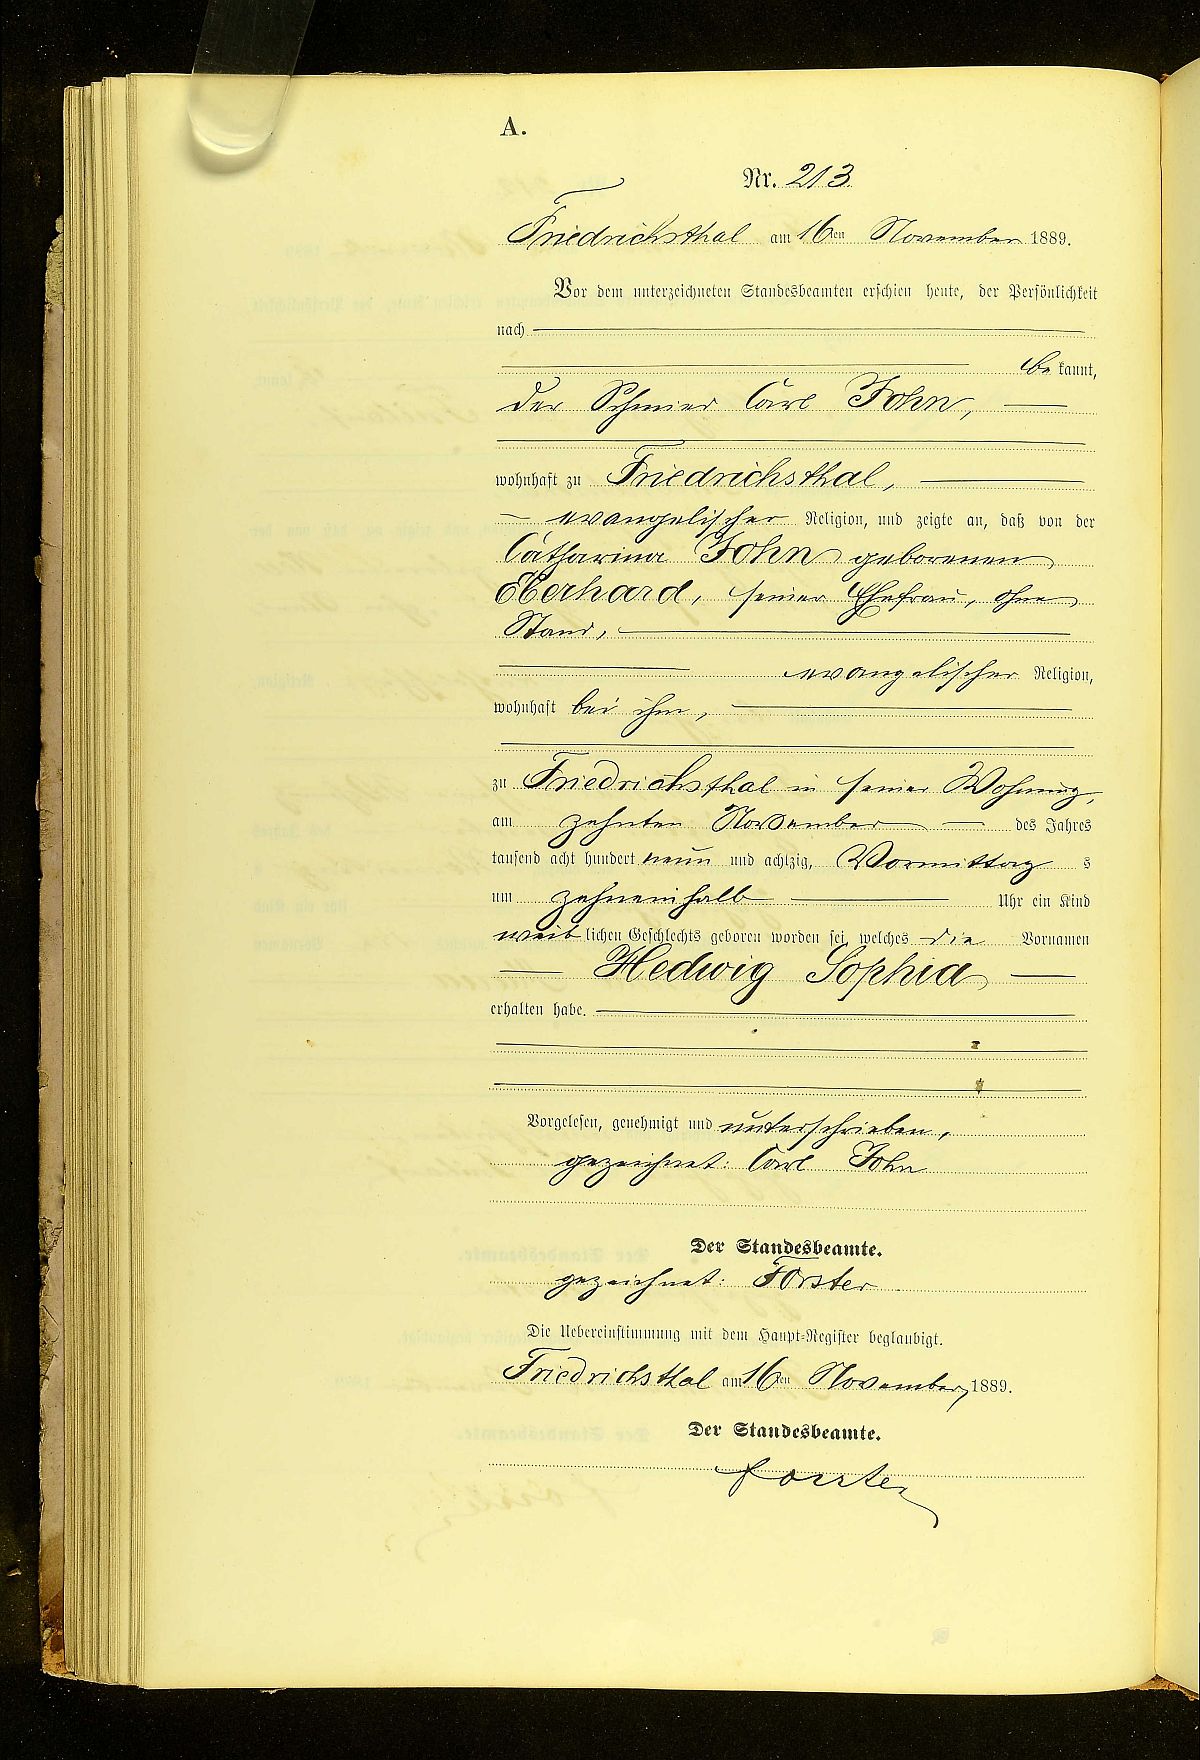 A.
Nr. 213.
Friedrichsthal am 16ten November 1889.
Vor dem unterzeichneten Standesbeamten erschien heute, der Persönlichkeit
nach
be kannt,
der Schmied Carl John,
wohnhaft zu Friedrichsthal,
evangelischer Religion, und zeigte an, daß von der
Catharina John geborenen
Eberhard, seiner Ehefrau, ohne
Stand,
evangelischer Religion,
wohnhaft bei ihm,
zu Friedrichsthal in seiner Wohnung,
am zehnten November des Jahres
tausend acht hundert neun und achtzig, Vormittag s
um zehneinhalb Uhr ein Kind
weib lichen Geschlechts geboren worden sei, welches die Vornamen
Hedwig Sophia
erhalten habe.
Vorgelesen, genehmigt und unterschrieben,
gezeichnet: Carl John
Der Standesbeamte.
gezeichnet: Forster
Die Uebereinstimmung mit dem Haupt-Register beglaubigt.
Friedrichsthal am 16ten November, 1889.
Der Standesbeamte.
Forster